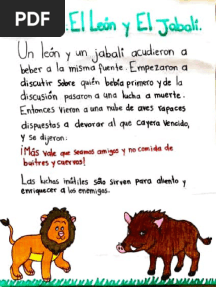 PDF
El León y El Jabalí.
Un león y un jabalí acudieron a
beber a la misma fuente. Empezaron a
discutir Sobre quién bebía primero y de la
discusión pasaron a una lucha a muerte.
Entonces Vieron a una nube de aves rapaces
dispuestas a devorar al que Cayera Vencido,
y se dijeron:
¡Más vale que seamos amigos y no comida de
buitres y cuervos!
Las luchas inútiles sólo sirven para aliento y
enriquecer a los enemigos.